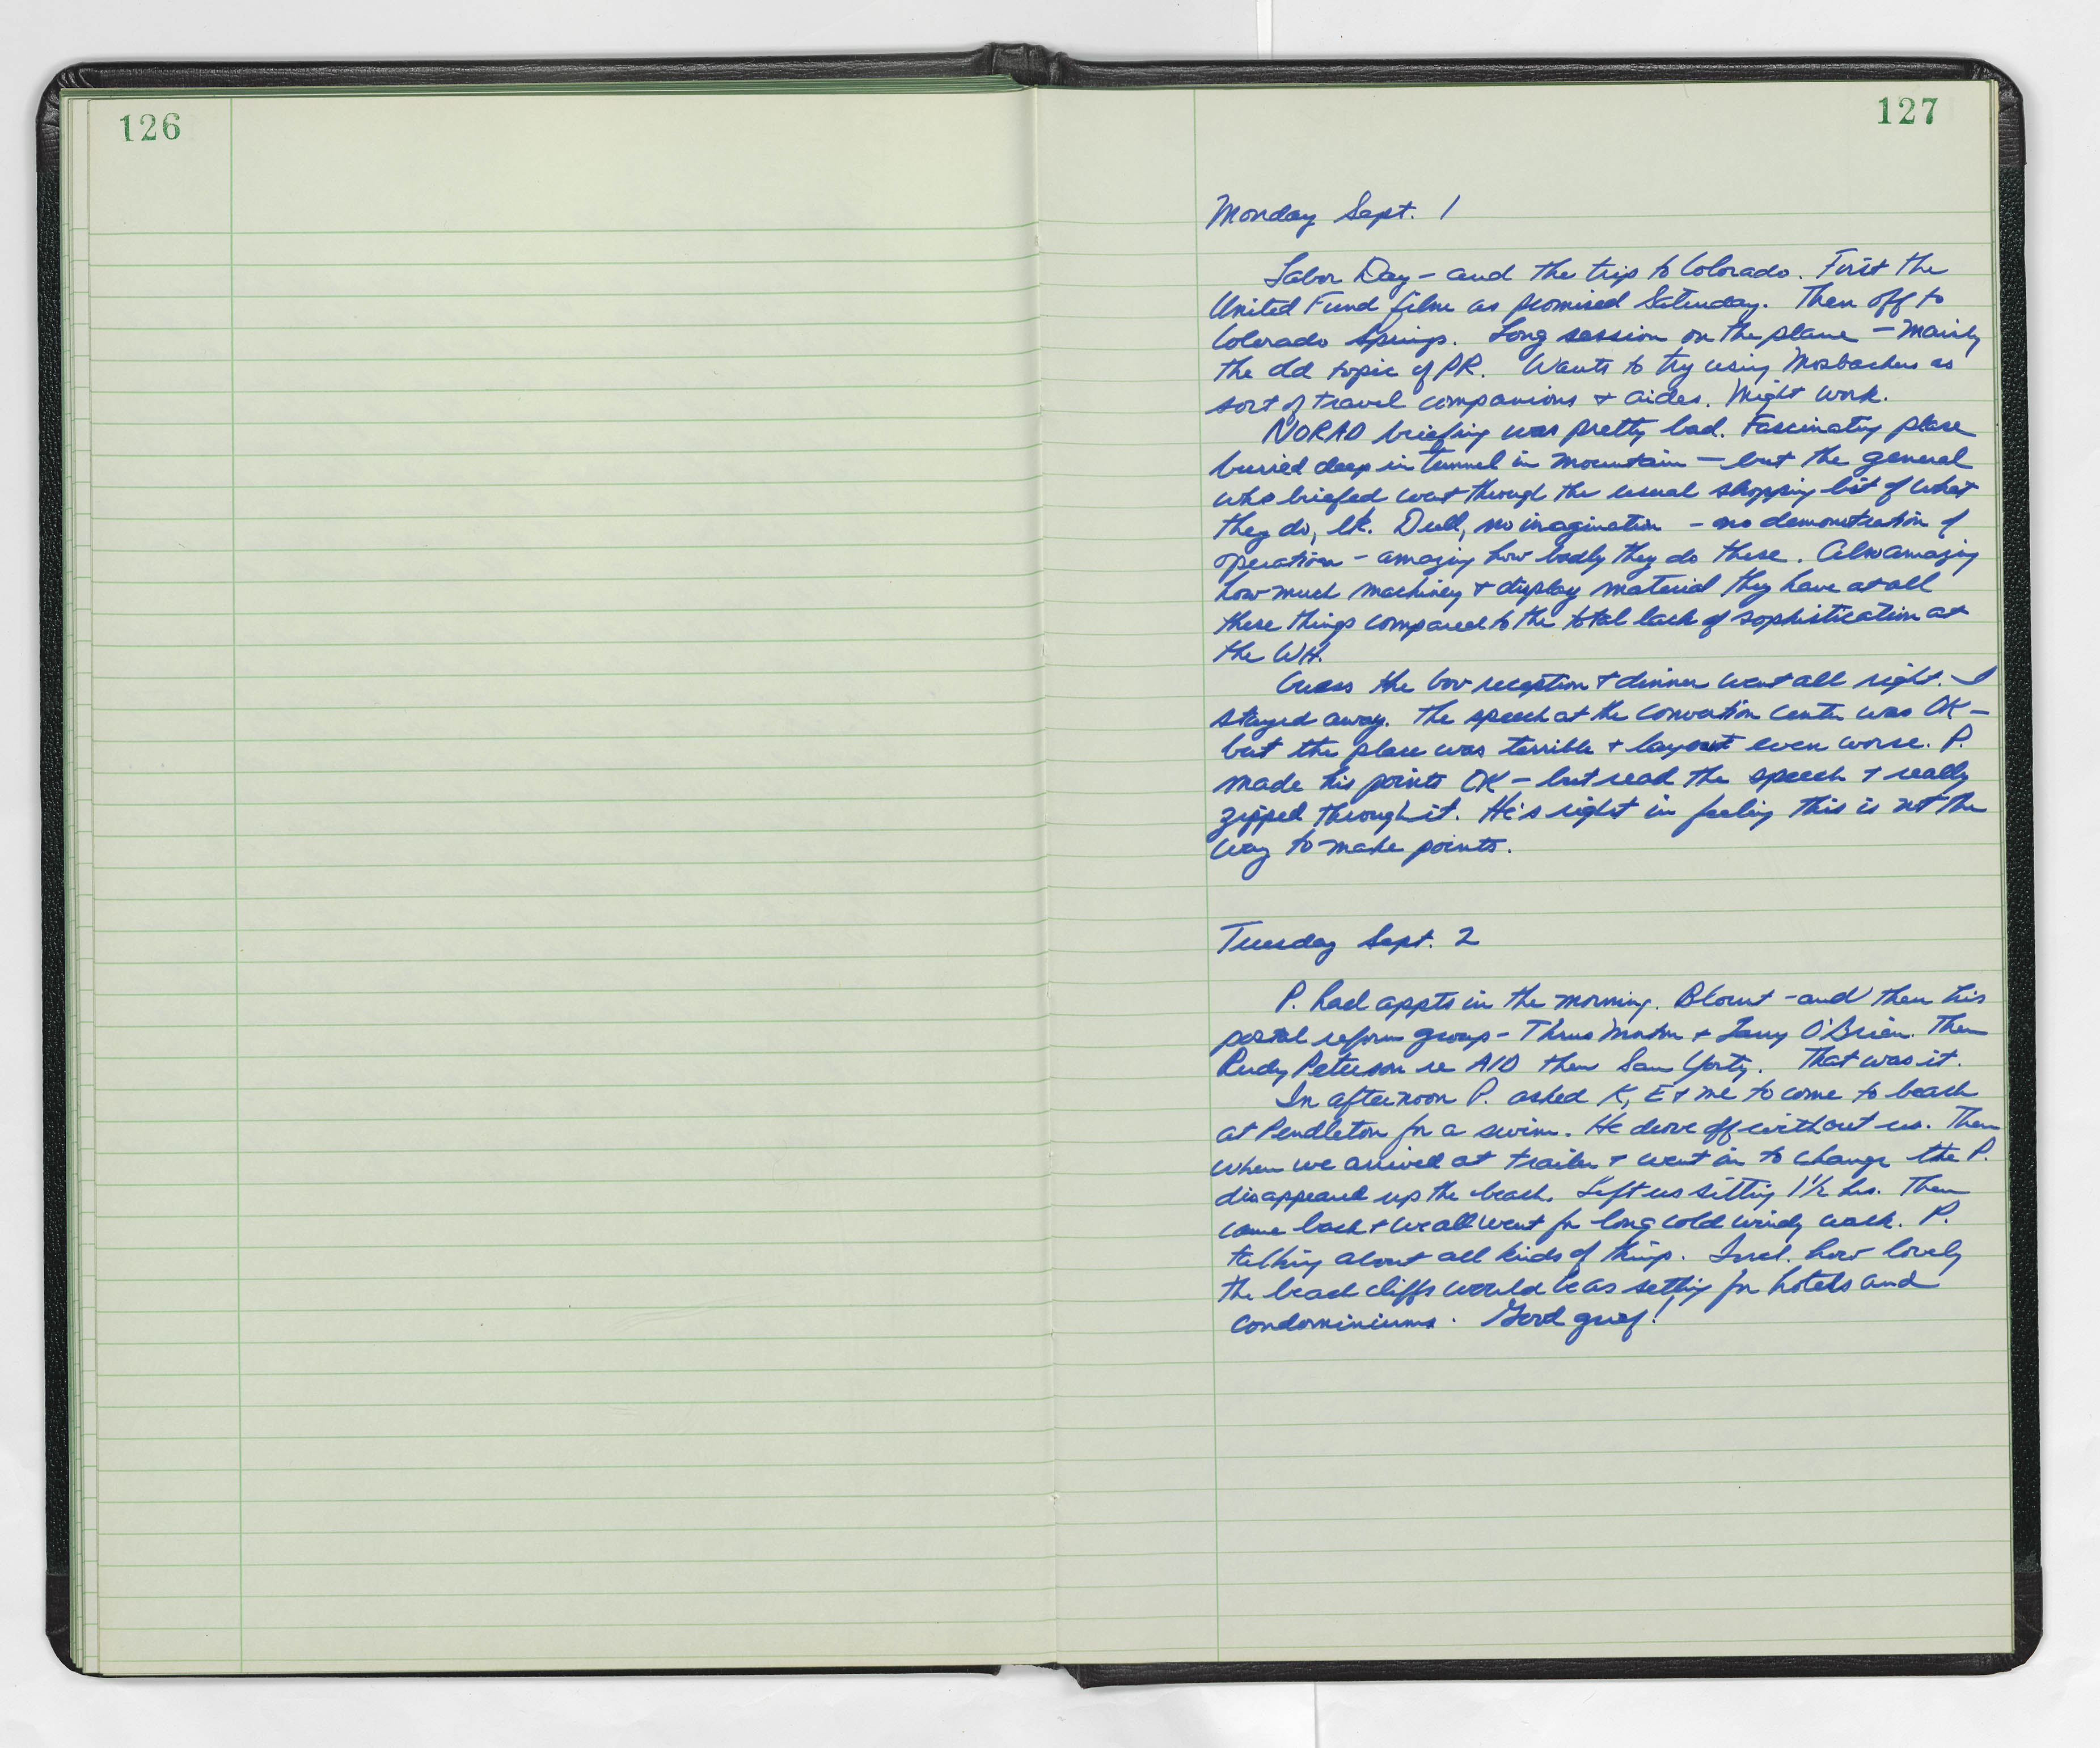 126
127
Monday Sept. 1
Labor Day - and the trip to Colorado. First the
United Fund film as promised Saturday. Then off to
Colorado Springs. Long session on the plane - mainly
the old topic of PR. Wants to try using Mosbachers as
sort of travel companions + aides. Might work.
NORAD briefing was pretty bad. Fascinating place
buried deep in tunnel in mountain - but the general
who briefed went through the usual shopping list of what
they do, etc. Dull, no imagination - no demonstration of
operation - amazing how badly they do these. Also amazing
how much machinery + display material they have at all
these things compared to the total lack of sophistication at
the WH.
Guess the Gov reception + dinner went all right. I
stayed away. The speech at the convention center was OK -
but the place was terrible + layout even worse. P.
made his points OK - but read the speech + really
zipped through it. He's right in feeling this is not the
way to make points.
Tuesday Sept. 2
P. had appts in the morning. Blount - and then his
postal reform group - Thrus Morton + Larry O'Brien. Then
Rudy Peterson re AID then Sam Yorty. That was it.
In afternoon P. asked K, E + me to come to beach
at Pendleton for a swim. He drove off without us. Then
when we arrived at trailer + went in to change the P.
disappeared up the beach. Left us sitting 1 1/2 hrs. Then
came back + we all went for long cold windy walk. P.
talking about all kinds of things. Incl. how lovely
the beach cliffs would be as setting for hotels and
condominiums. Good grief!